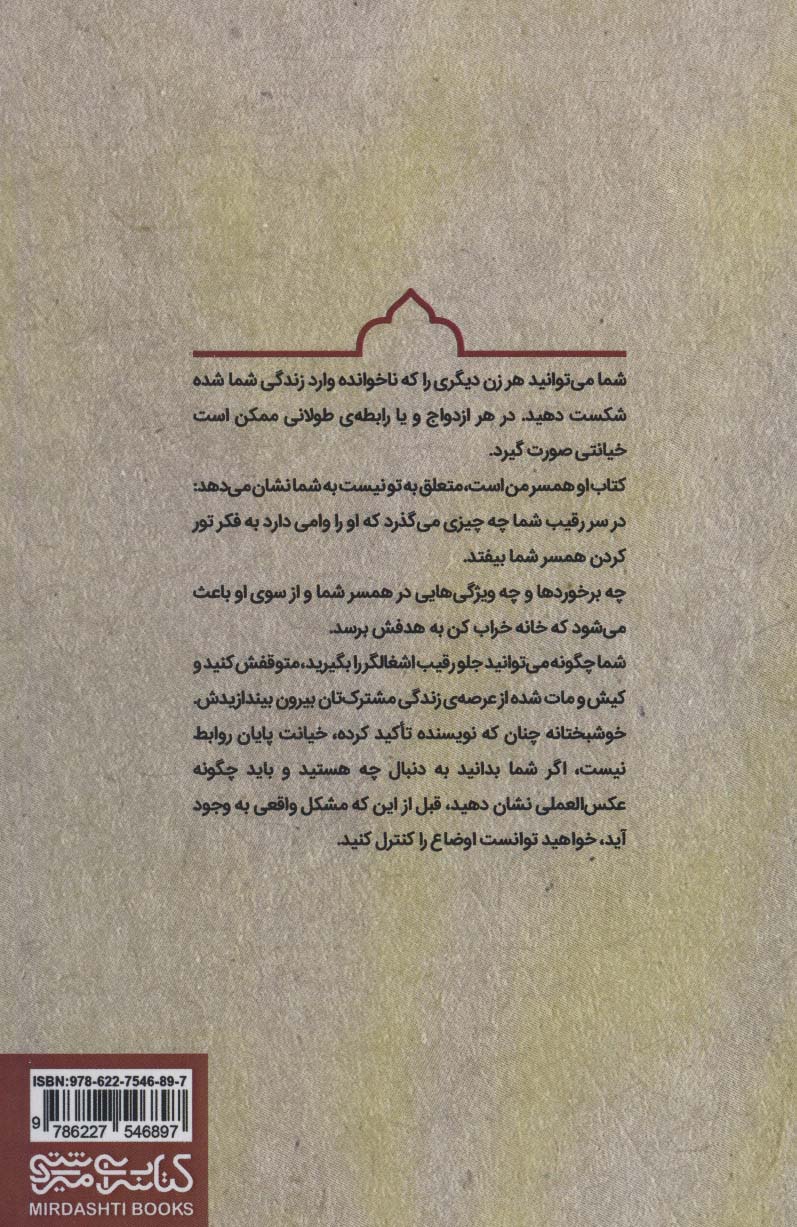 شما می‌توانید هر زن دیگری را که ناخوانده وارد زندگی شما شده
شکست دهید. در هر ازدواج و یا رابطه‌ی طولانی ممکن است
خیانتی صورت گیرد.
کتاب او همسر من است، متعلق به تو نیست به شما نشان می‌دهد:
در سر رقیب شما چه چیزی می‌گذرد که او را وامی دارد به فکر تور
کردن همسر شما بیفتد.
چه برخوردها و چه ویژگی‌هایی در همسر شما و از سوی او باعث
می‌شود که خانه خراب کن به هدفش برسد.
شما چگونه می‌توانید جلو رقیب اشغالگر را بگیرید، متوقفش کنید و
کیش و مات شده از عرصه‌ی زندگی مشترک‌تان بیرون بیندازیدش.
خوشبختانه چنان که نویسنده تأکید کرده، خیانت پایان روابط
نیست، اگر شما بدانید به دنبال چه هستید و باید چگونه
عکس‌العملی نشان دهید، قبل از این که مشکل واقعی به وجود
آید، خواهید توانست اوضاع را کنترل کنید.
ISBN:978-622-7546-89-7
9 786227 546897
کتابسرای میردشتی
MIRDASHTI BOOKS